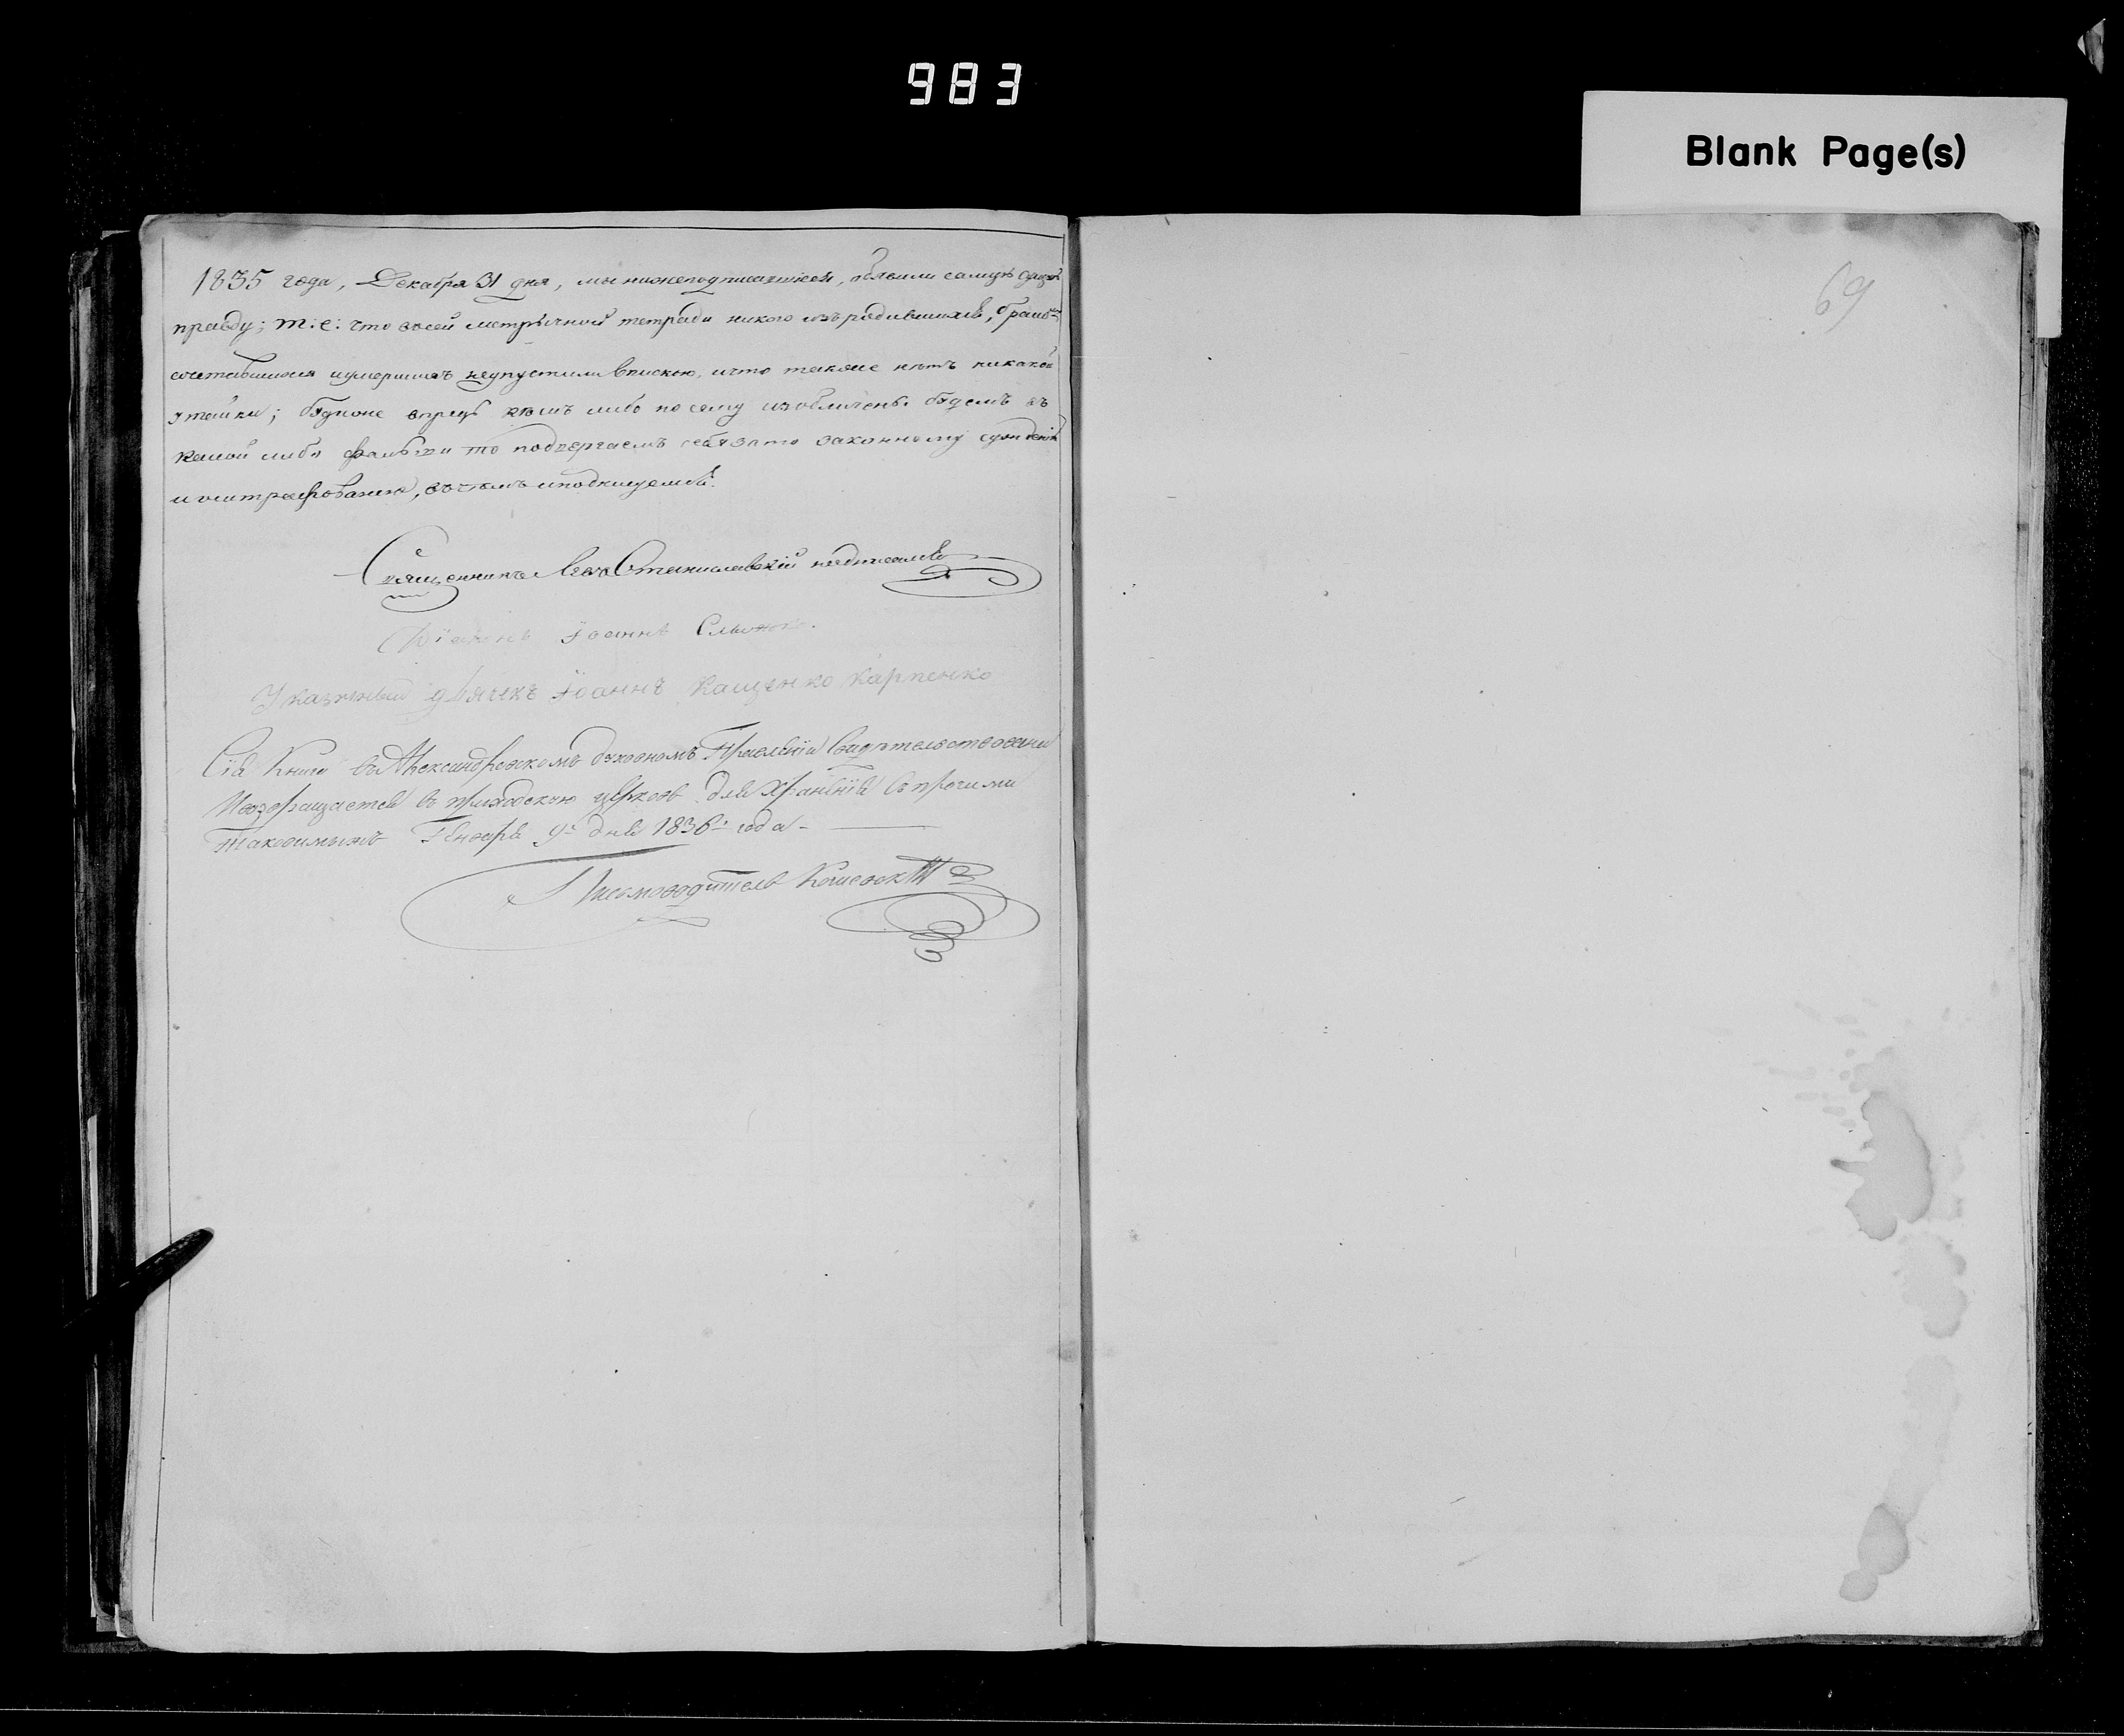 983
Blank Page(s)
69
1835 года, Декабря 31 дня, мы нижеподписавшіеся, объявили самую сущую
правду; т: е: что в сей метричной тетради никого изъ родившихся, брако
сочетавшихся и умершихъ неупустили впискою, и что также нѣтъ никакой
утайки; будеже впредь кѣмъ либо по сему изобличены будемъ въ
какой либо фальши то подвергаемъ себя за то законному сужденію
и оштрафованію, въ чемъ и подписуемся.
Священникъ Лев Станиславскій подписался
Діаконъ Іоаннъ
Указный дьячекъ Іоаннъ Кащенко Карпенко
Сія Книга въ Александровскомъ духовномъ Правленіи Свидѣтельствована
И возвращается въ приходскою церковь для храненія съ прочими
таковыми Генваря 9: дня 1836: года -
Писмоводитель